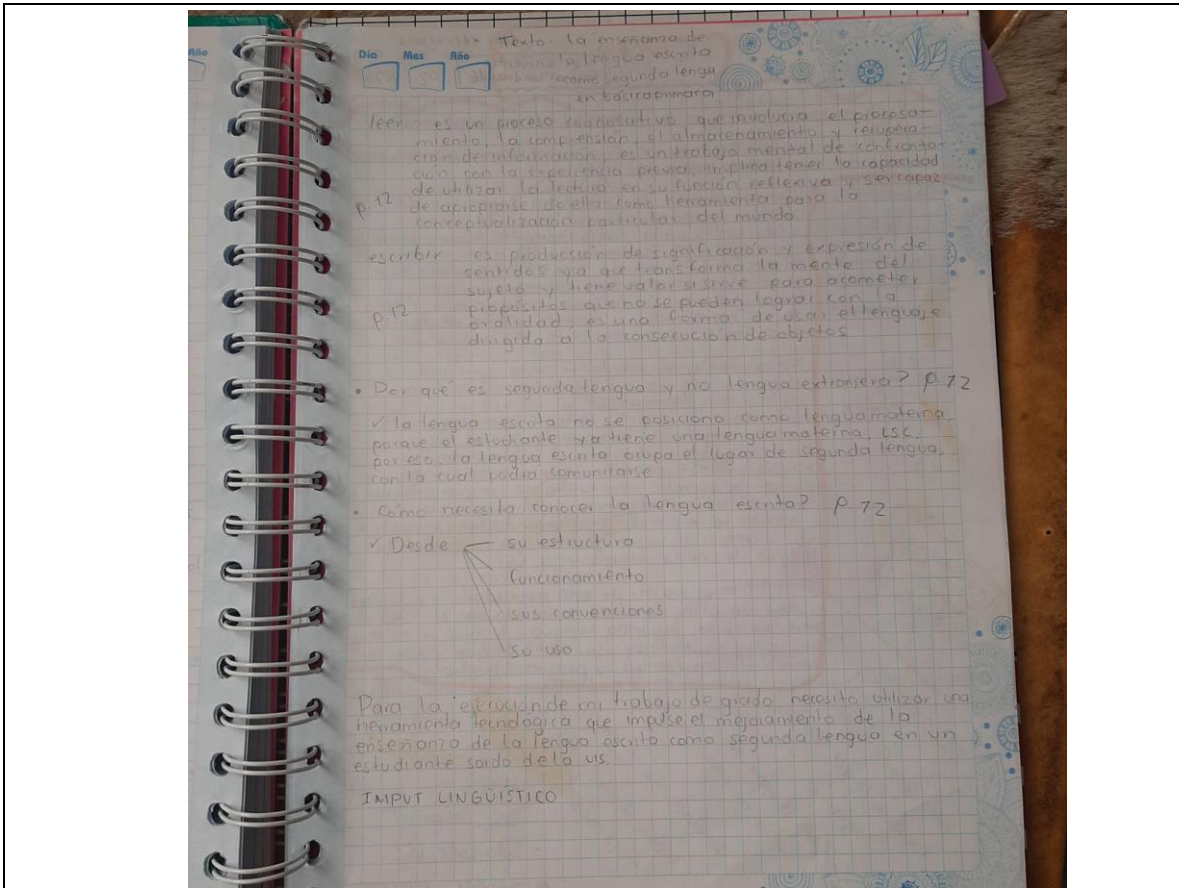 Año
Día Mes Año
Texto: la enseñanza de
la lengua escrita
como segunda lengua
en básica primaria
leer: es un proceso cognositivo que involucra el procesa-
miento, la comprensión, el almacenamiento y recupera-
ción de información, es un trabajo mental de confronta-
ción con la experiencia previa, implica tener la capacidad
de utilizar la lectura en su función reflexiva y ser capaz
p. 12 de apropiarse de ella como herramienta para la
conceptualización particular del mundo
escribir es producción de significación y expresión de
sentidos ya que transforma la mente del
sujeto y tiene valor si sirve para acometer
p. 12 propósitos que no se pueden lograr con la
oralidad, es una forma de usar el lenguaje
dirigida a la consecución de objetos
• Por qué es segunda lengua y no lengua extranjera? p. 12
✓ la lengua escrita no se posiciona como lengua materna
porque el estudiante ya tiene una lengua materna, LSC.
por eso, la lengua escrita ocupa el lugar de segunda lengua,
con la cual podrá comunicarse
• Cómo necesita conocer la lengua escrita? p. 12
✓ Desde su estructura
funcionamiento
sus convenciones
su uso
Para la ejecución de mi trabajo de grado necesito utilizar una
herramienta tecnológica que impulse el mejoramiento de la
enseñanza de la lengua escrita como segunda lengua en un
estudiante sordo de la UIS.
IMPUT LINGÜÍSTICO